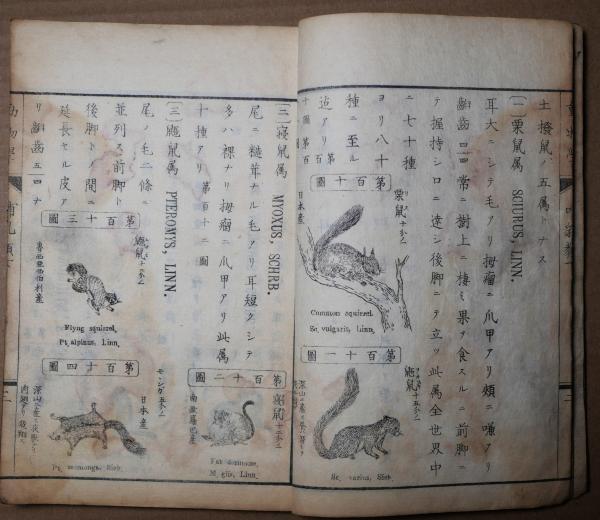 土撥鼠ノ五属トナス
(一)栗鼠属 SCIURUS, LINN.
耳大ニシテ毛アリ拇瘤ニ爪甲アリ頬ニ嗛アリ
齣齒四四常ニ樹上ニ棲ミ果ヲ食スルニ前脚ニ
テ握持シロニ達シ後脚ニテ立ツ此属全世界中
ニ七十種
ヨリ八十
種ニ至ル
迠アリ
第百十圖
栗鼠
日本産
Common squirrel.
Sc. vulgaris, Linn.
第百十一圖
鼯鼠
Sc. varius, Sieb.
(二)寝鼠属 MYOXUS, SCHRB.
尾ニ䰐茸ナル毛アリ耳短クシテ
多ハ裸ナリ拇瘤ニ爪甲アリ此属
十種アリ 第百十二圖
第百十二圖
南歐羅巴産
Fat dormouse,
M. glis, Linn.
(三)鼯鼠属 PTEROMYS, LINN.
尾ノ毛二條ニ
並列ス前脚ト
後脚トノ間ニ
延長セル皮ア
リ齣齒五四ナ
第百十三圖
鼯鼠
魯西亜西伯利産
Flyng squirrel,
Pt. alpinus, Linn.
第百十四圖
モモングワ
日本産
Pt. momonga, Sieb.